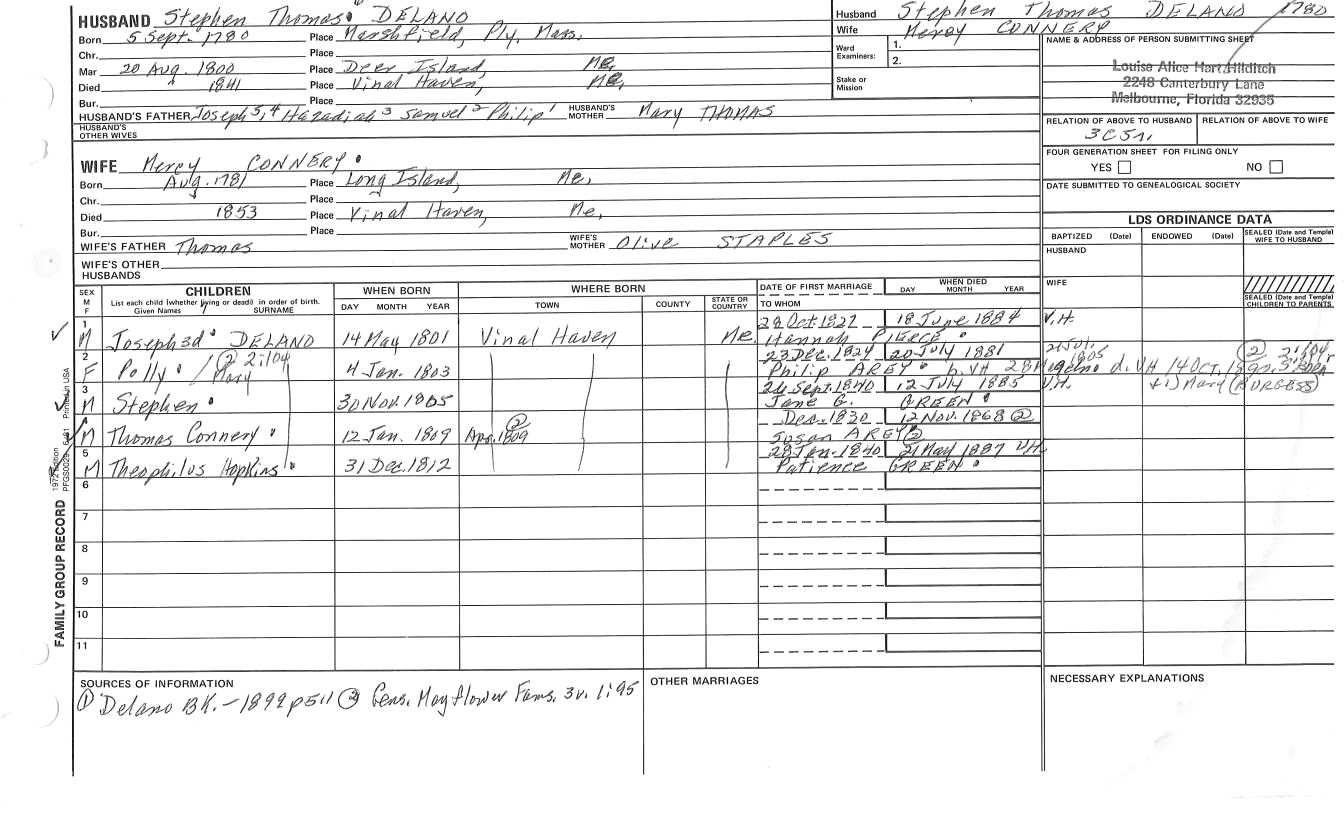 HUSBAND Stephen Thomas DELANO
Born 5 Sept. 1780 Place Marshfield, Ply, Mass.
Chr. Place
Mar 20 Aug. 1800 Place Deer Island, Me,
Died 1841 Place Vinal Haven, Me,
Bur. Place
HUSBAND'S FATHER Joseph 5, 4 Hazadiah 3 Samuel 2 Philip 1 HUSBAND'S MOTHER Mary THOMAS
HUSBAND'S OTHER WIVES
WIFE Mercy CONNERY
Born Aug. 1781 Place Long Island, Me,
Chr. Place
Died 1853 Place Vinal Haven, Me,
Bur. Place
WIFE'S FATHER Thomas WIFE'S MOTHER Olive STAPLES
WIFE'S OTHER HUSBANDS
Husband Stephen Thomas DELANO 1780
Wife Mercy CONNERY
Ward Examiners: 1.
2.
Stake or Mission
NAME & ADDRESS OF PERSON SUBMITTING SHEET
Louise Alice Hart Hilditch
2248 Canterbury Lane
Melbourne, Florida 32935
RELATION OF ABOVE TO HUSBAND RELATION OF ABOVE TO WIFE
3C5r,
FOUR GENERATION SHEET FOR FILING ONLY
YES NO
DATE SUBMITTED TO GENEALOGICAL SOCIETY
LDS ORDINANCE DATA
BAPTIZED (Date) ENDOWED (Date) SEALED (Date and Temple) WIFE TO HUSBAND
HUSBAND
WIFE
SEALED (Date and Temple) CHILDREN TO PARENTS
SEX M F
CHILDREN
List each child (whether living or dead) in order of birth.
Given Names SURNAME
WHEN BORN
DAY MONTH YEAR
WHERE BORN
TOWN COUNTY STATE OR COUNTRY
DATE OF FIRST MARRIAGE
TO WHOM
WHEN DIED
DAY MONTH YEAR
1 M Joseph 3d DELANO 14 May 1801 Vinal Haven Me. 28 Oct. 1827 18 June 1884 V.H.
Hannah PIERCE
2 F Polly / Mary (2) 2:104 4 Jan. 1803 23 Dec. 1824 20 July 1881
Philip AREY b. VH 28 d. VH 14 OCT.
3 M Stephen 30 Nov. 1805 26 Sept. 1840 12 July 1885 V.H. Mary (BURGESS)
Jane G. GREEN
M Thomas Connery 12 Jan. 1809 Apr. 1809 (2) Dec. 1830 12 Nov. 1868 (2)
Susan AREY (2)
5 M Theophilus Hopkins 31 Dec. 1812 28 Jan. 1840 21 May 1887 VH
Patience GREEN
6
7
8
9
10
11
FAMILY GROUP RECORD
PFGS0029 6/81 Printed in USA
SOURCES OF INFORMATION
(1) Delano BK. - 1899 p511 (2) Gens. Mayflower Fams. 3v. 1:95
OTHER MARRIAGES
NECESSARY EXPLANATIONS